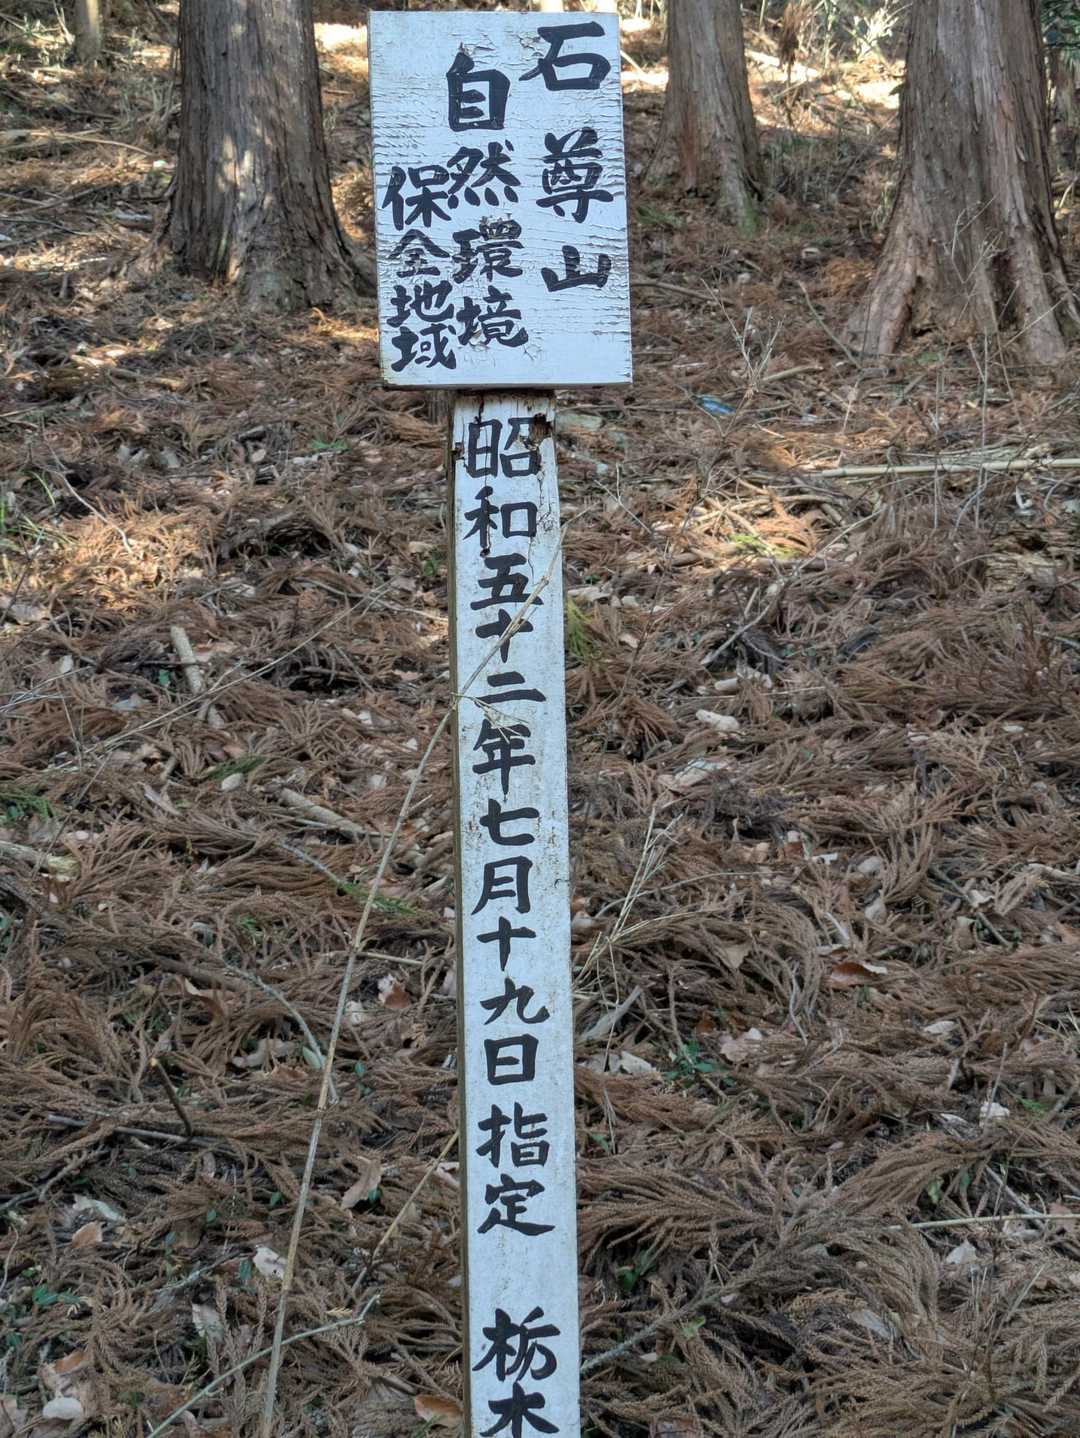 石尊山
自然環境
保全地域
昭和五十二年七月十九日指定 栃木